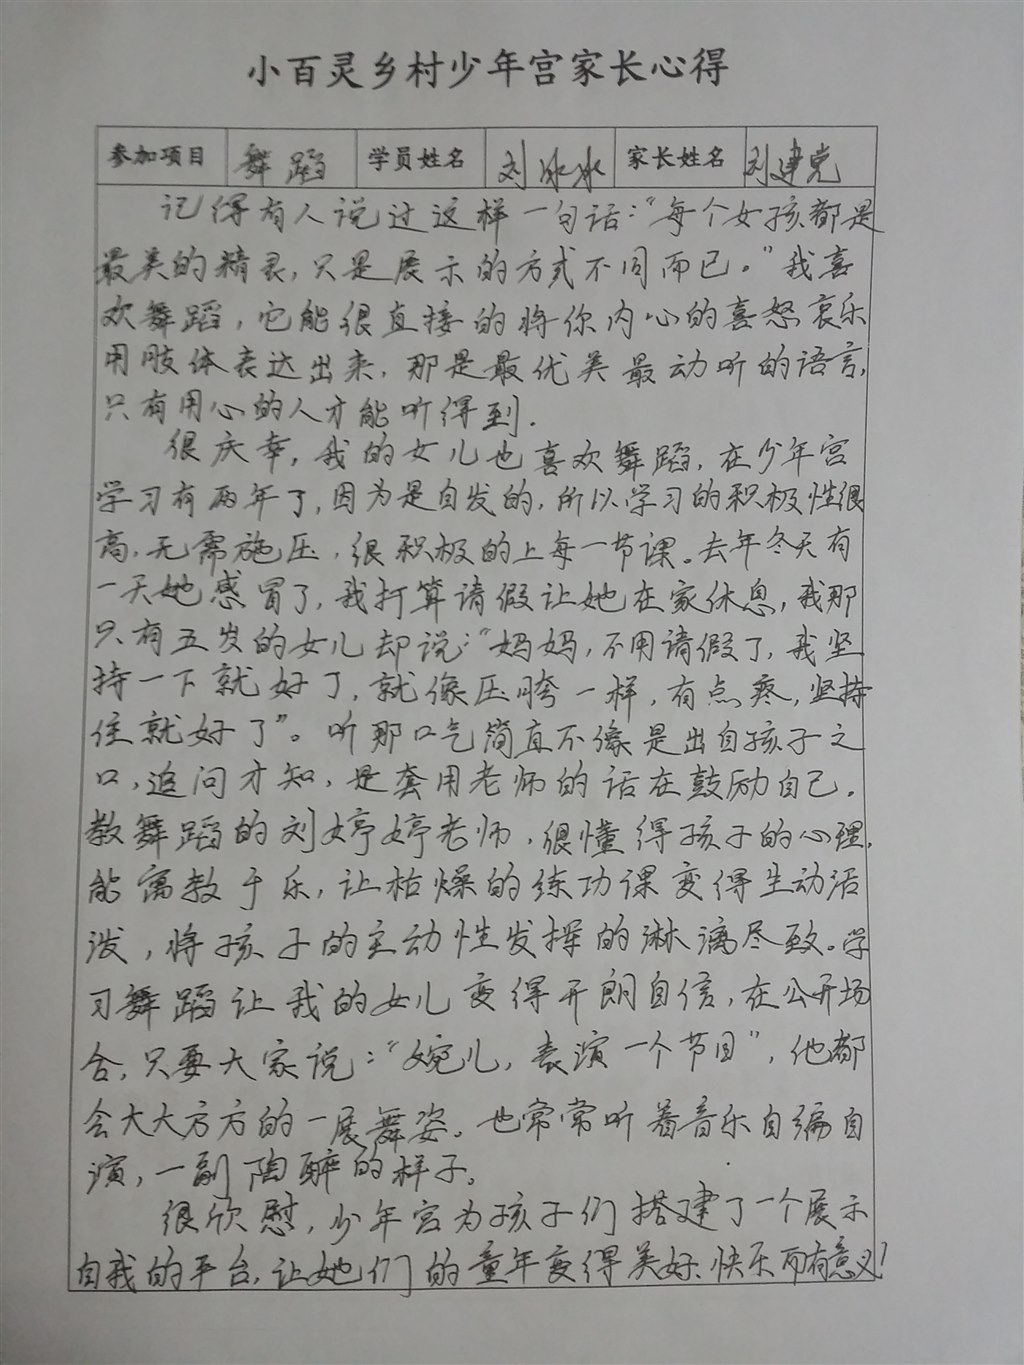 小百灵乡村少年宫家长心得
参加项目 舞蹈 学员姓名 刘冰冰 家长姓名 刘建党
记得有人说过这样一句话:“每个女孩都是
最美的精灵,只是展示的方式不同而已。”我喜
欢舞蹈,它能很直接的将你内心的喜怒哀乐
用肢体表达出来,那是最优美最动听的语言,
只有用心的人才能听得到.
很庆幸,我的女儿也喜欢舞蹈,在少年宫
学习有两年了,因为是自发的,所以学习的积极性很
高,无需施压,很积极的上每一节课。去年冬天有
一天她感冒了,我打算请假让她在家休息,我那
只有五岁的女儿却说:“妈妈,不用请假了,我坚
持一下就好了,就像压胯一样,有点疼,坚持
住就好了”。听那口气简直不像是出自孩子之
口,追问才知,是套用老师的话在鼓励自己.
教舞蹈的刘婷婷老师,很懂得孩子的心理,
能寓教于乐,让枯燥的练功课变得生动活
泼,将孩子的主动性发挥的淋漓尽致。学
习舞蹈让我的女儿变得开朗自信,在公开场
合,只要大家说:“婉儿,表演一个节目”,他都
会大大方方的一展舞姿。也常常听着音乐自编自
演,一副陶醉的样子。
很欣慰,少年宫为孩子们搭建了一个展示
自我的平台,让她们的童年变得美好、快乐而有意义!